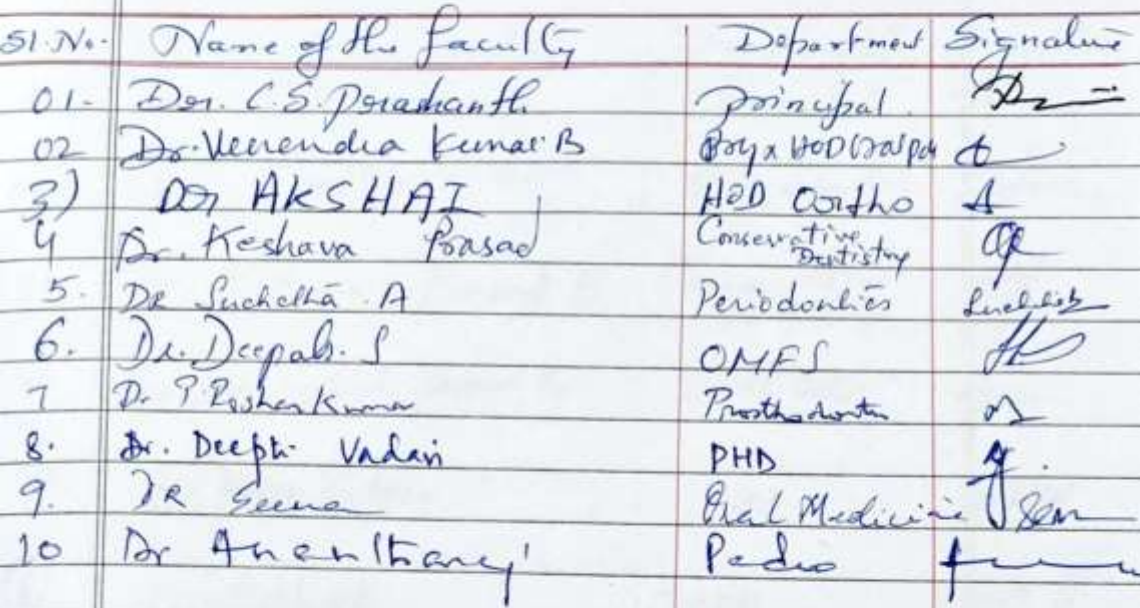 Sl. No. Name of the faculty Department Signature
01. Dr. C.S. Prashanth Principal
02 Dr. Veerendra Kumar B HOD
3) Dr AKSHAI HOD Ortho
4 Dr. Keshava Prasad Conservative Dentistry
5. DR Suchetha A Periodontics Suchetha
6. Dr. Deepak. S OMFS
7 Dr P. Roshan Kumar Prosthodontics
8. Dr. Deepti Vadavi PHD
9. DR Seema Oral Medicine
10 Dr Ananthraj Pedo